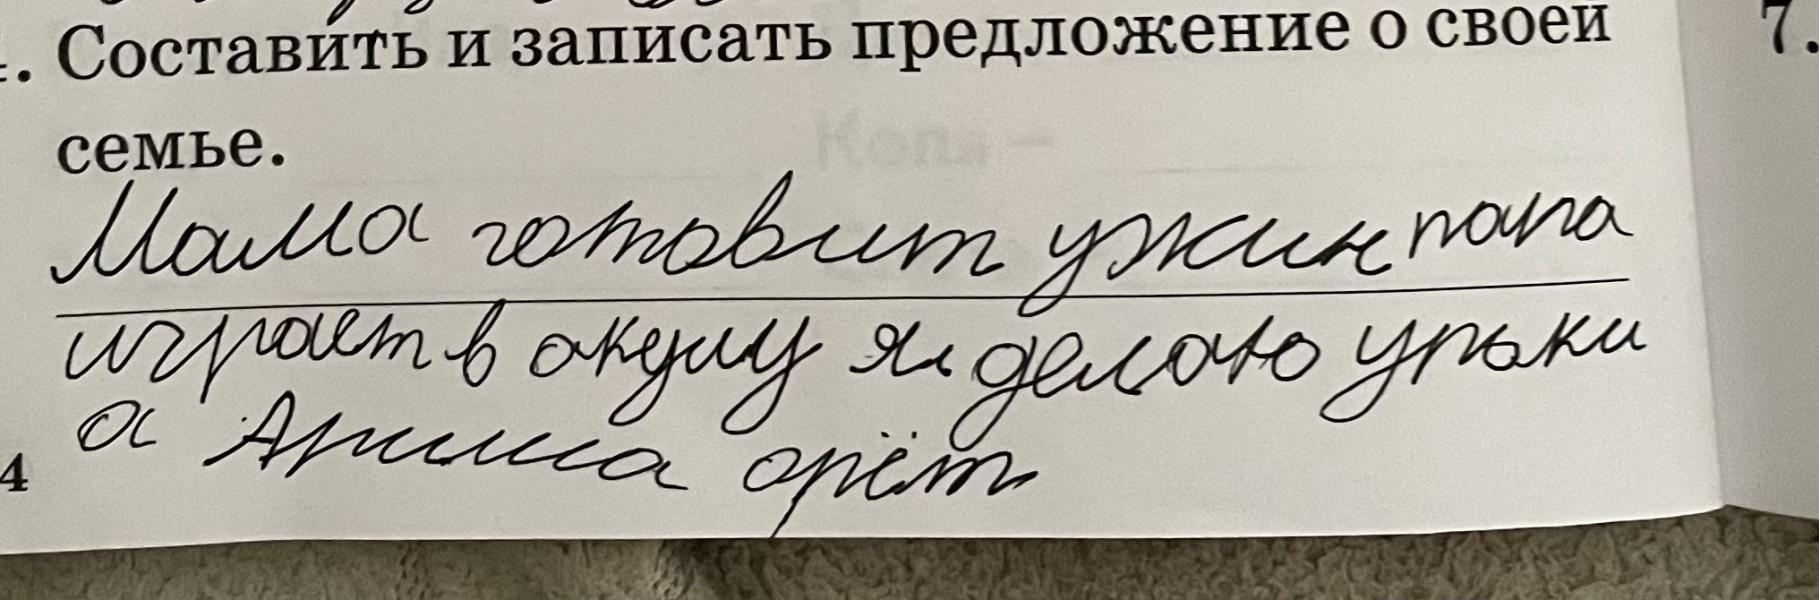 . Составить и записать предложение о своей 7.
семье.
Мама готовит ужин папа
играет в акулу я делаю уроки
а Арина орёт
4